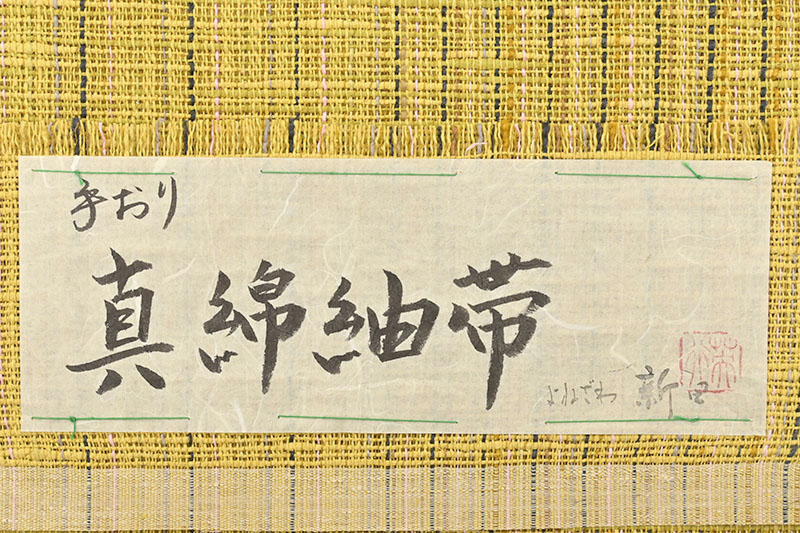 手おり
真綿紬帯
よねざわ 新田